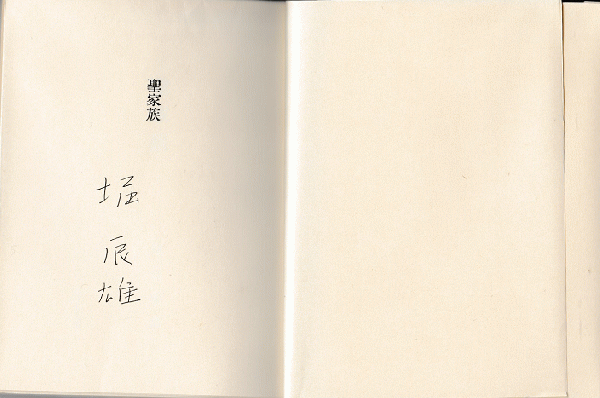 聖家族
堀辰雄